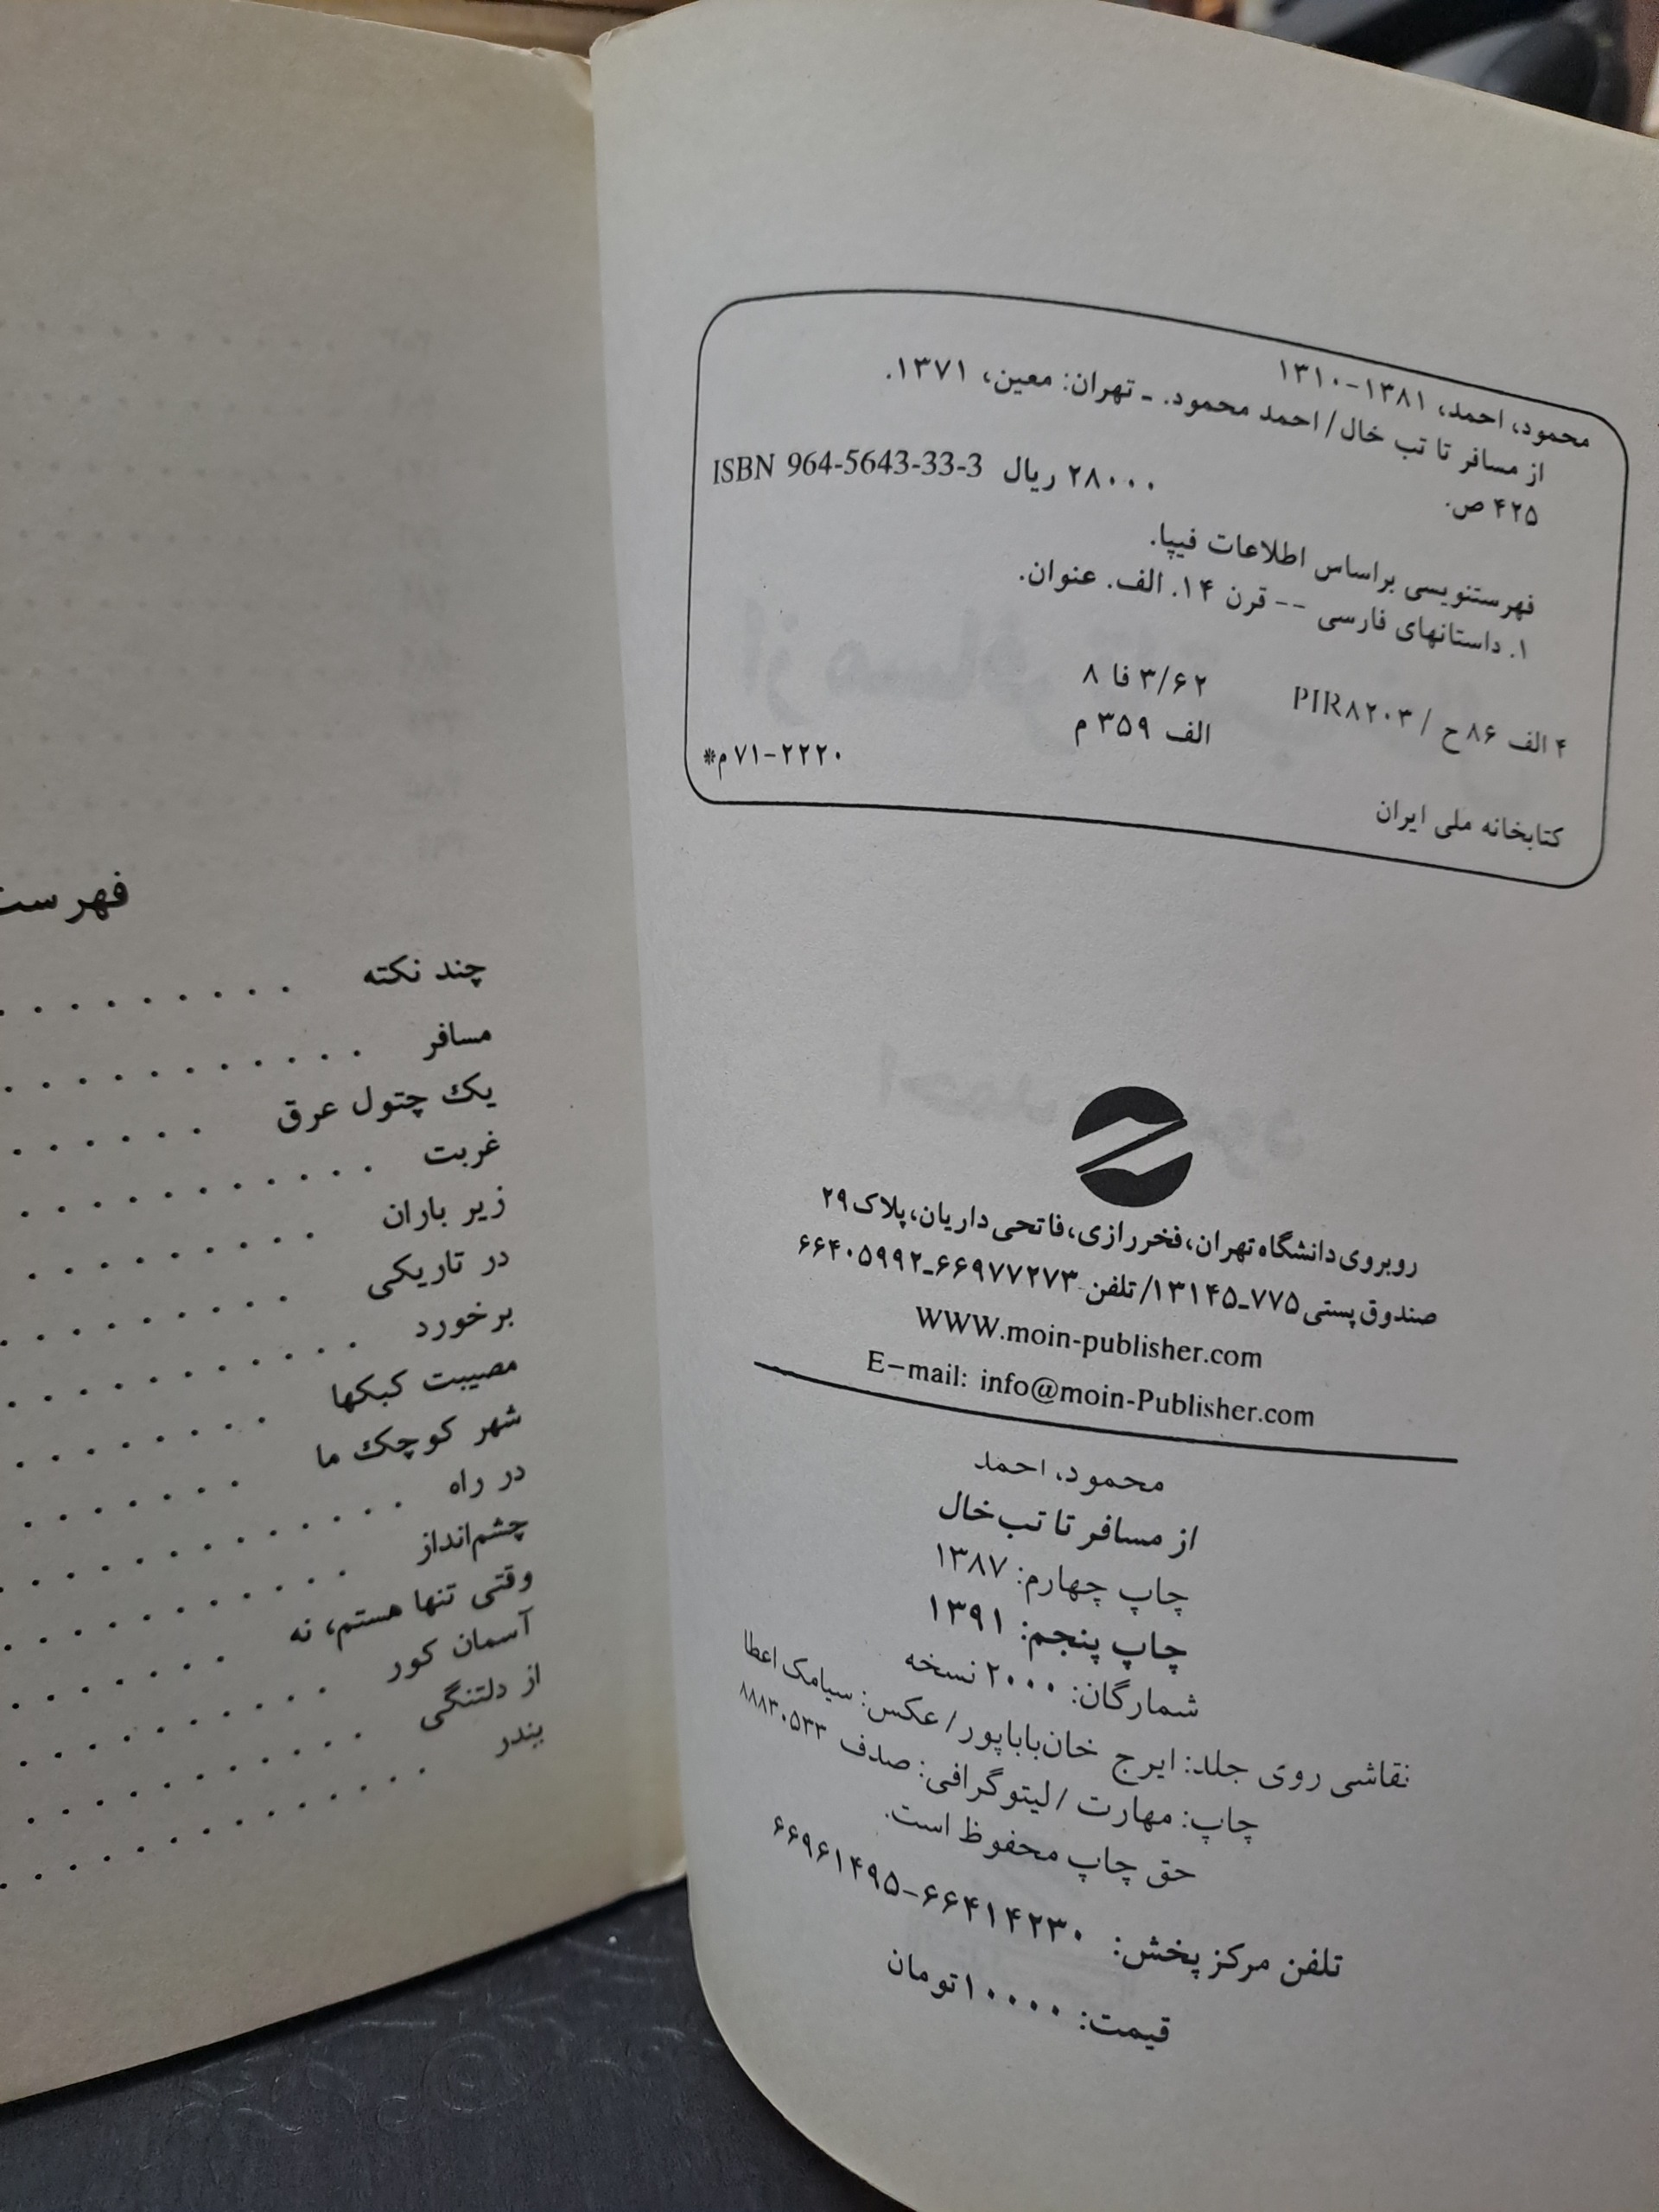 محمود، احمد، ۱۳۸۱-۱۳۱۰
از مسافر تا تب خال/ احمد محمود. ـ تهران: معین، ۱۳۷۱.
۴۲۵ ص.
ISBN 964-5643-33-3 ۲۸۰۰۰ ریال
فهرستنویسی براساس اطلاعات فیپا.
۱. داستانهای فارسی -- قرن ۱۴. الف. عنوان.
۴ الف ۸۶ ح / PIR۸۲۰۳ ۳/۶۲ فا ۸
الف ۳۵۹ م
کتابخانه ملی ایران ۲۲۲۰-۷۱م*
روبروی دانشگاه تهران، فخررازی، فاتحی داریان، پلاک ۲۹
صندوق پستی ۷۷۵ـ۱۳۱۴۵/ تلفن ۶۶۹۷۷۲۷۳ـ۶۶۴۰۵۹۹۲
WWW.moin-publisher.com
E-mail: info@moin-Publisher.com
محمود، احمد
از مسافر تا تب‌خال
چاپ چهارم: ۱۳۸۷
چاپ پنجم: ۱۳۹۱
شمارگان: ۲۰۰۰ نسخه
نقاشی روی جلد: ایرج خان‌باباپور/ عکس: سیامک اعطا
چاپ: مهارت /لیتوگرافی: صدف ۸۸۸۳۰۵۳۳
حق چاپ محفوظ است.
تلفن مرکز پخش: ۶۶۴۱۴۲۳۰-۶۶۹۶۱۴۹۵
قیمت: ۱۰۰۰۰تومان
فهرست
چند نکته
مسافر
یک چتول عرق
غربت
زیر باران
در تاریکی
برخورد
مصیبت کبکها
شهر کوچک ما
در راه
چشم‌انداز
وقتی تنها هستم، نه
آسمان کور
از دلتنگی
بندر